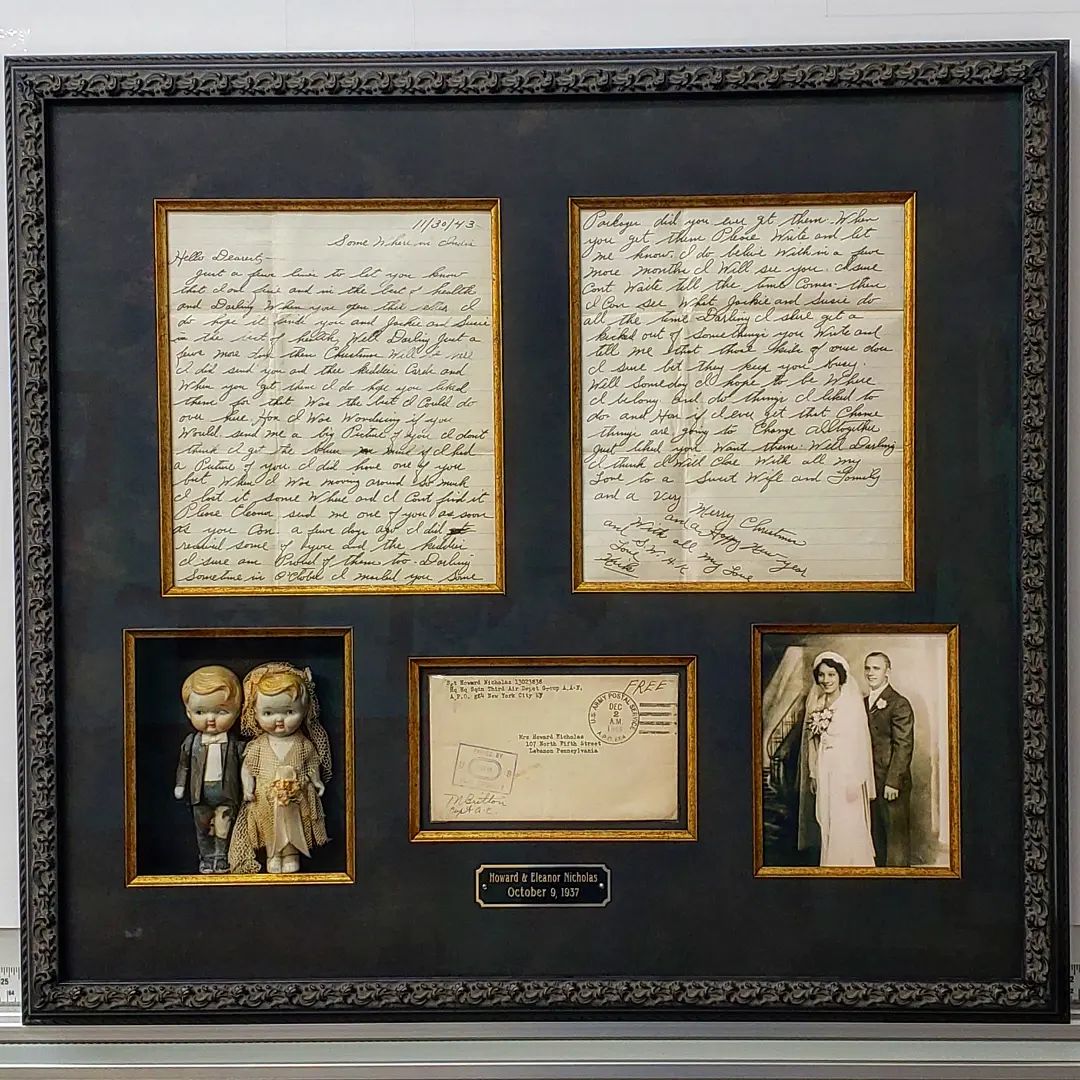 11/30/43
Some Where in India
Hello Dearest,
Just a few lines to let you know
that I am fine and in the best of health
and Darling When you open this letter I
do hope it finds you and Jackie and Susie
in the best of health. Well Darling Just a
few more and then Christmas Will be here
I did send you and the kiddies Cards and
When you get them I do hope you liked
them for that Was the best I Could do
over here. Hon I Was Wondering if you
Would send me a big Picture of you I dont
think I get the blues so much if I had
a Picture of you I did have one of you
but When I Was moving around so much
I lost it some Where and I Cant find it
Please send me one of you as soon
as you Can a few days ago I did
some of you and the kiddies
I sure am Proud of them too. Darling
Sometime in I mailed you Some
Packages did you ever get them. When
you get them Please Write and let
me know. I do believe Within a few
more months I Will see you. I sure
Cant Waite till the time Comes. then
I Can see What Jackie and Susie do
all the time Darling I sure get a
kicked out of some things you Write and
tell me that those kids of ours does
I sure bet they keep you busy.
Well Someday I hope to be Where
I belong and do things I liked to
do and Hon if I ever get that Chance
things are going to Change alltogether
Just liked you Want them. Well Darling
I think I Will Close With all my
Love to a Sweet Wife and Family
and a Very
Merry Christmas
and a Happy New year
With all my Love
and
Love
Sgt Howard Nicholas 13023838
Hq Hq Sqdn Third Air Depot Group A.A.F.
A.P.O. New York City NY
FREE
U.S. ARMY POSTAL SERVICE
DEC
2
A.M
A.P.O.
Mrs Howard Nicholas
107 North Fifth Street
Lebanon Pennsylvania
PASSED BY
M Britton
Capt A.C.
Howard & Eleanor Nicholas
October 9, 1937
25
64